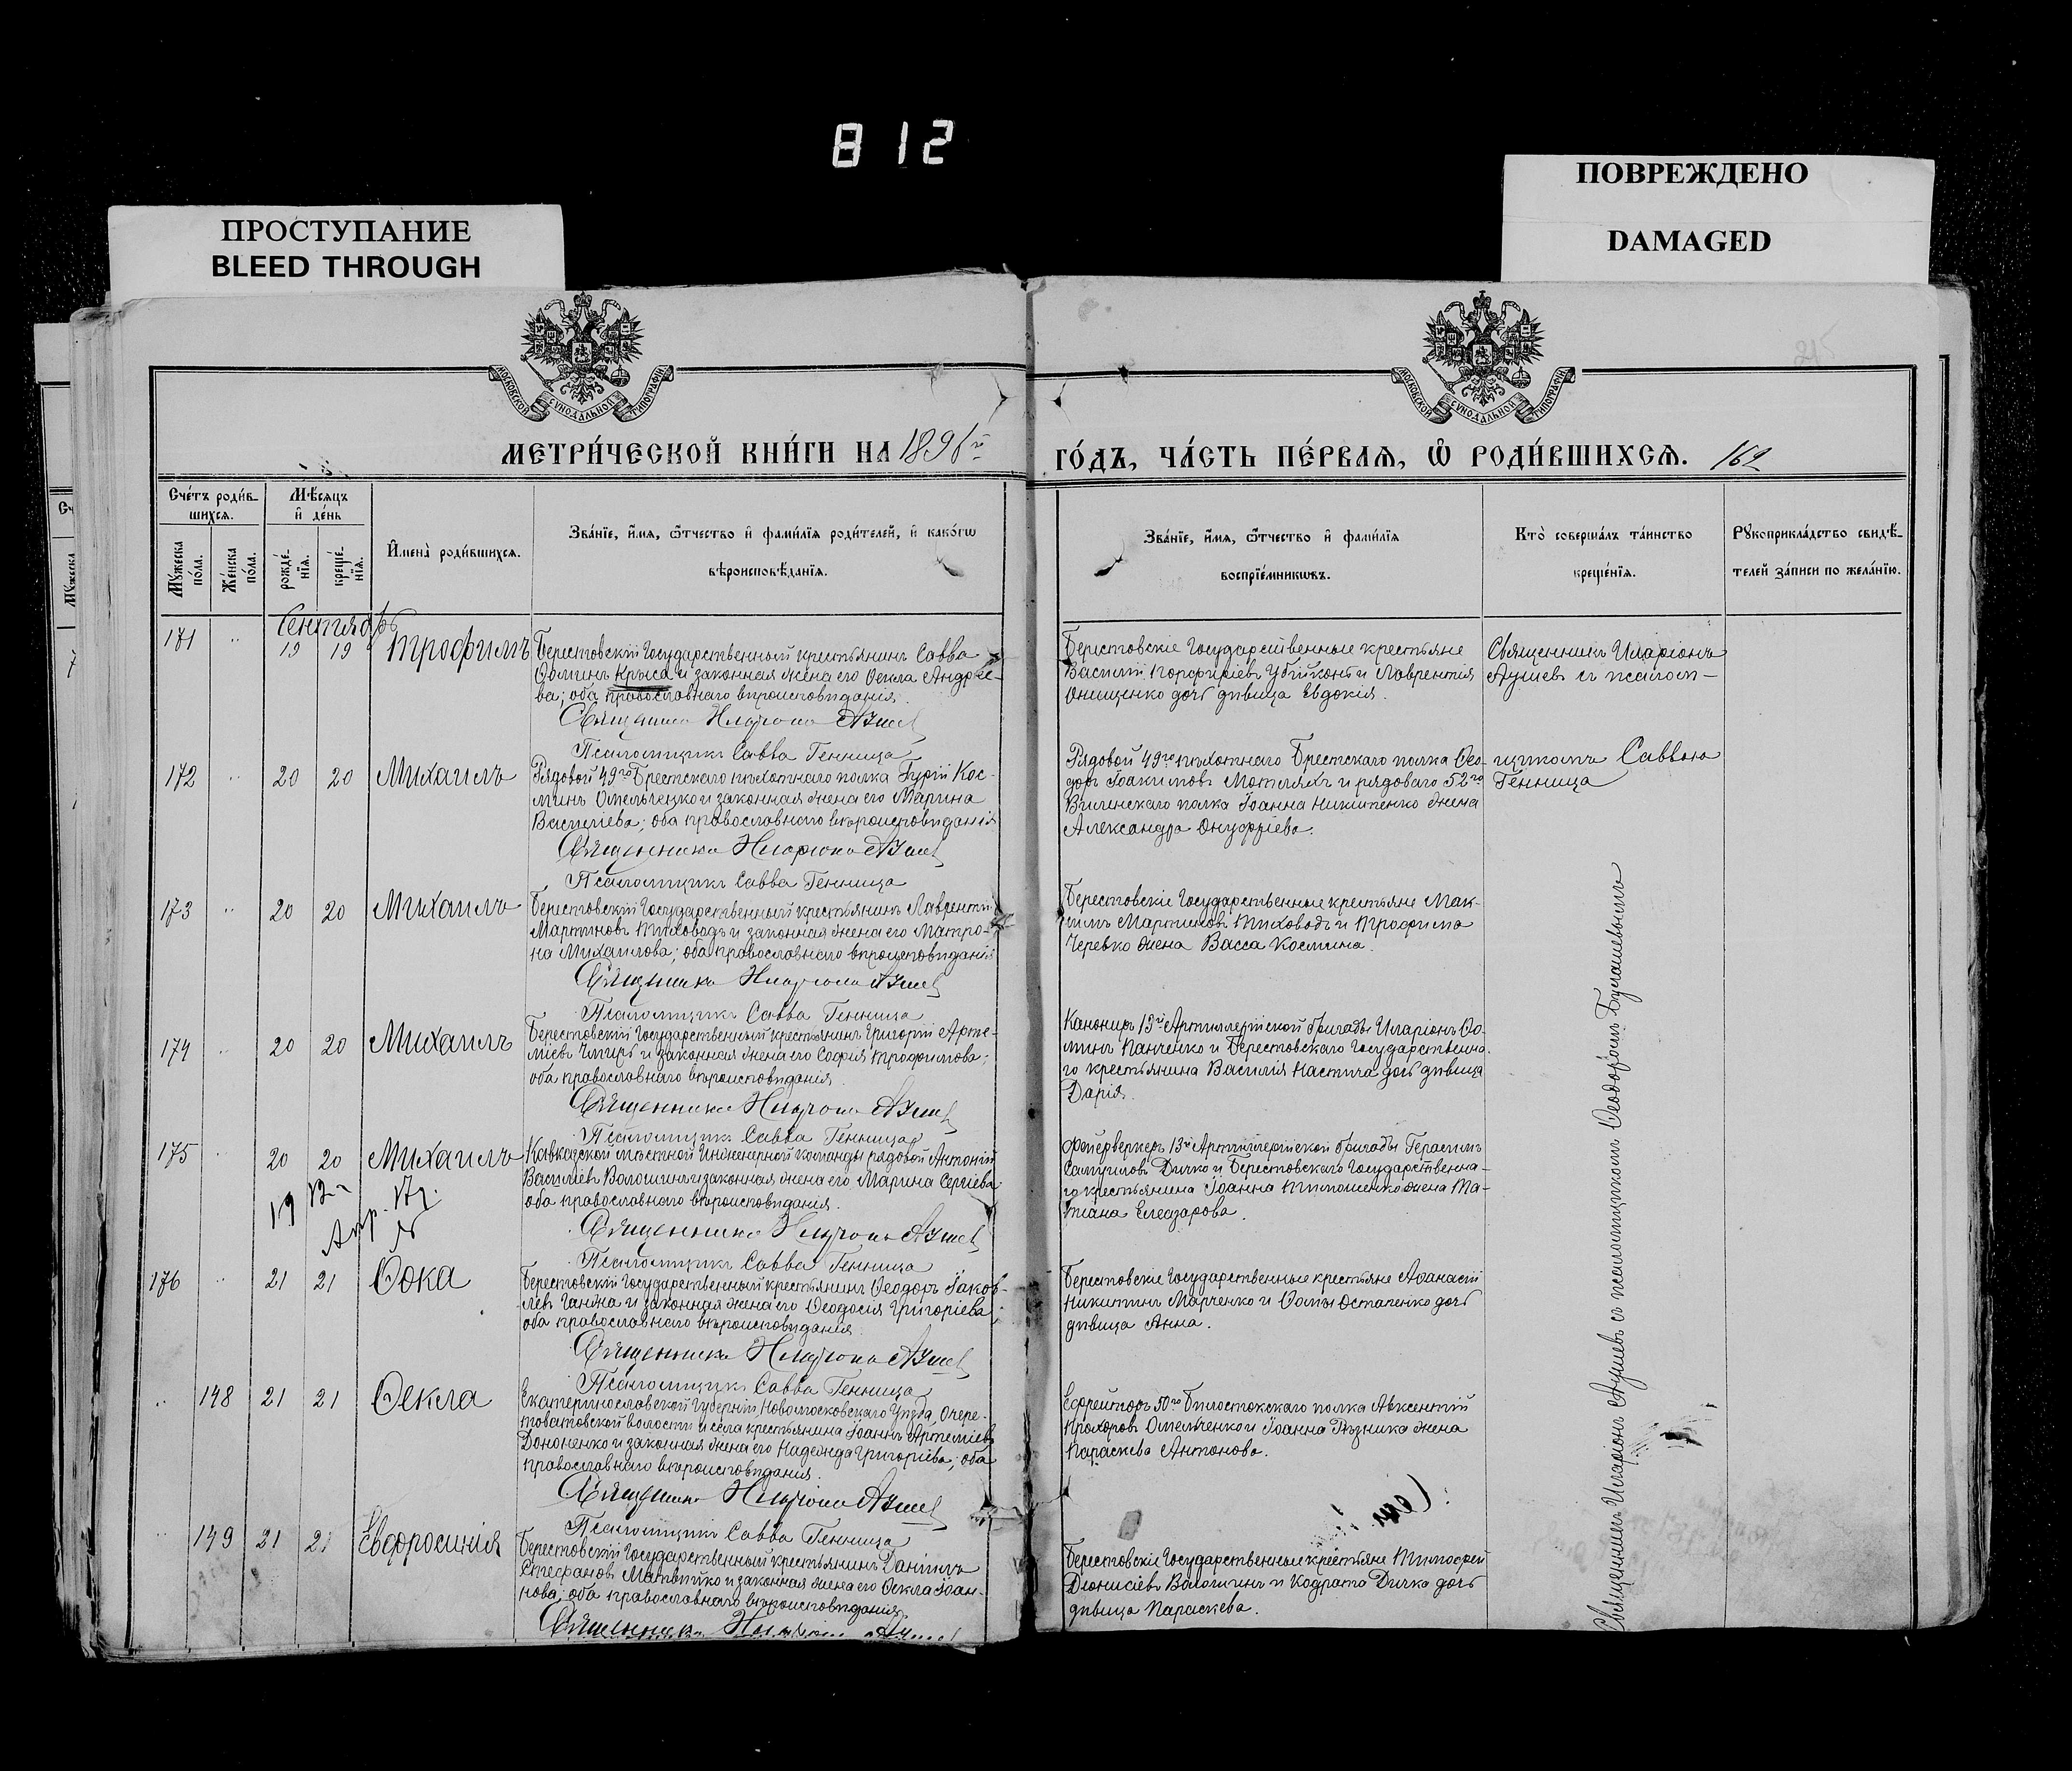 812
ПРОСТУПАНИЕ
BLEED THROUGH
ПОВРЕЖДЕНО
DAMAGED
МОСКОВСКОЙ СУНОДАЛЬНОЙ ТИПОГРАФІИ
МОСКОВСКОЙ СУНОДАЛЬНОЙ ТИПОГРАФІИ
МЕТРИ́ЧЕСКОЙ КНИ́ГИ НА
ГО́ДЪ, ЧА́СТЬ ПЕ́РВАѦ, Ѡ҆ РОДИ́ВШИХСѦ. 162
Сче́тъ роди́в-
шихсѧ.
Мѣ́сѧцъ
и҆ де́нь
Мꙋ́жеска
по́ла.
Же́нска
по́ла.
рожде́-
нїѧ.
креще́-
нїѧ.
И҆мена̀ роди́вшихсѧ.
Зва́нїе, и҆́мѧ, ѻ҆́тчество и҆ фами́лїѧ роди́телей, и҆ како́гѡ
вѣроисповѣ́данїѧ.
Зва́нїе, и҆́мѧ, ѻ҆́тчество и҆ фами́лїѧ
воспрїе́мникѡвъ.
Кто̀ соверша́лъ та́инство
креще́нїѧ.
Рꙋкоприкла́дство свидѣ́-
телей за́писи по жела́нїю.
Сентябрь
171 " 19 19 Трофимъ
Берестовскій Государственный крестьянинъ Савва
Ѳоминъ Крыса и законная жена его Ѳекла Андрее-
ва; оба православнаго вѣроисповѣданія.
Священникъ Иларіонъ
Псаломщикъ Савва Генница
Берестовскіе Государственные крестьяне
Василій Порфиріевъ Убійконь и Лаврентія
Онищенко дочь дѣвица Евдокія.
Священникъ Иларіонъ
съ псалом-
щикомъ Саввою
Генница
172 " 20 20 Михаилъ
Рядовой 49го Брестскаго пѣхотнаго полка Гурій Кос-
минъ Омельченко и законная жена его Марина
Василіева; оба православнаго вѣроисповѣданія
Священникъ Иларіонъ
Псаломщикъ Савва Генница
Рядовой 49го пѣхотнаго Брестскаго полка Ѳео-
доръ Іоакимовъ Мотляхъ и рядоваго 52го
Виленскаго полка Іоанна Никитенко жена
Александра Онуфріева.
173 " 20 20 Михаилъ
Берестовскій Государственный крестьянинъ Лаврентій
Мартиновъ Тиховодъ и законная жена его Матро-
на Михаилова; оба православнаго вѣроисповѣданія
Священникъ Иларіонъ
Псаломщикъ Савва Генница
Берестовскіе Государственные крестьяне Мак-
симъ Мартиновъ Тиховодъ и Трофима
Черевко жена Васса Космина.
174 " 20 20 Михаилъ
Берестовскій Государственный крестьянинъ Григорій Арте-
міевъ Чмирь и законная жена его Софія Трофимова;
оба православнаго вѣроисповѣданія.
Священникъ Иларіонъ
Псаломщикъ Савва Генница
Канониръ 13й Артиллерійской бригады Иларіонъ Ѳо-
минъ Панченко и Берестовскаго Государственна-
го крестьянина Василія Кастича дочь дѣвица
Дарія.
175 " 20 20 Михаилъ
Кавказской мѣстной Инженерной команды рядовой Антоній
Василіевъ Волошинъ и законная жена его Марина Сергіева
оба православнаго вѣроисповѣданія.
Священникъ Иларіонъ
Псаломщикъ Савва Генница
Фейерверкеръ 13й Артиллерійской бригады Герасимъ
Самуиловъ Дичко и Берестовскаго Государственна-
го крестьянина Іоанна Тимошенко жена Та-
тіана Елеазарова.
176 " 21 21 Ѳока
Берестовскій Государственный крестьянинъ Ѳеодоръ Іаков-
левъ Ганжа и законная жена его Ѳеодосія Григоріева;
оба православнаго вѣроисповѣданія.
Священникъ Иларіонъ
Псаломщикъ Савва Генница
Берестовскіе Государственные крестьяне Аѳанасій
Никитинъ Марченко и Ѳомы Остапенко дочь
дѣвица Анна.
" 148 21 21 Ѳекла
Екатеринославской Губерніи, Новомосковскаго Уѣзда, Очере-
товатовской волости и села крестьянина Іоаннъ Артеміевъ
Дононенко и законная жена его Надежда Григоріева; оба
православнаго вѣроисповѣданія.
Священникъ Иларіонъ
Псаломщикъ Савва Генница
Ефрейторъ 50го Бѣлостокскаго полка Авксентій
Прохоровъ Омельченко и Іоанна Рѣзника жена
Параскева Антонова.
" 149 21 21 Евфросинія
Берестовскій Государственный крестьянинъ Даніилъ
Стефановъ Матвѣйко и законная жена его Ѳекла Іоан-
нова; оба православнаго вѣроисповѣданія.
Священникъ
Берестовскіе Государственные крестьяне Тимофей
Діонисіевъ Волошинъ и Кодрата Дичка дочь
дѣвица Параскева.
Священникъ Иларіонъ съ псаломщикомъ Ѳеодоромъ